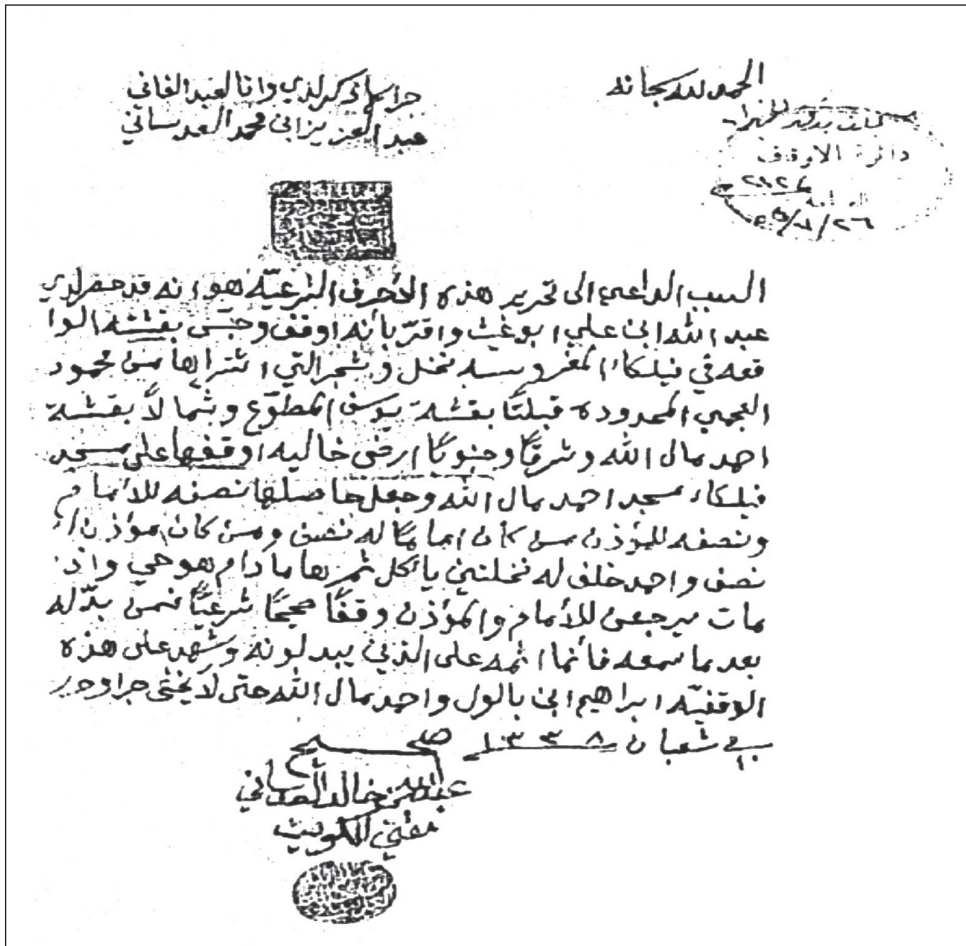 الحمد لله سبحانه
جرا ما ذكر لدي وانا العبد الفاني
عبد العزيز ابن محمد العدساني
دائرة الاوقاف
السبب الداعي الى تحرير هذه الأحرف الشرعيّه هو انه قد حضر لدي
عبد الله ابن علي ابو غيث واقرّ بأنه اوقف وحبّس بقشته الوا
قعه في فيلكا المغروسه نخل وشجر التي اشتراها من محمود
العجمي المحدوده قبلتًا بقشة يوسف المطوّع وشمالاً بقشة
احمد مال الله وشرقًا وجنوبًا ارض خاليه اوقفها على مسجد
فيلكا مسجد احمد مال الله وجعل حاصلها نصفه للأمام
ونصفه للمؤذن من كان امامًا له نصف ومن كان مؤذن له
نصف واحد خلف له نخلتين يأكل ثمرها ما دام هو حي واذ
مات يرجعن للأمام والمؤذن وقفًا صحيحًا شرعيًّا فمن بدّله
بعد ما سمعه فأنما اثمه على الذين يبدلونه وشهد على هذه
الوقفيّه ابراهيم ابن بالول واحمد مال الله حتى لا يخفى جرا وحرر
في شعبان ١٣٣٨
صحيح
عبد الله بن خالد العدساني
مفتي الكويت